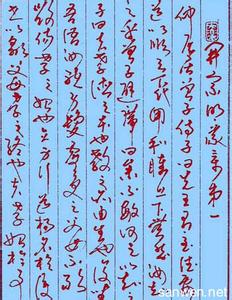 開宗明義章第一
仲尼居曾子侍子曰先王有至德要
道以順天下民用和睦上下無怨汝知
之乎曾子避席曰參不敏何足以知之
子曰夫孝德之本也教之所由生也復坐
吾語汝身體髮膚受之父母不敢
毀傷孝之始也立身行道揚名於後世
以顯父母孝之終也夫孝始於事
sanwen.net